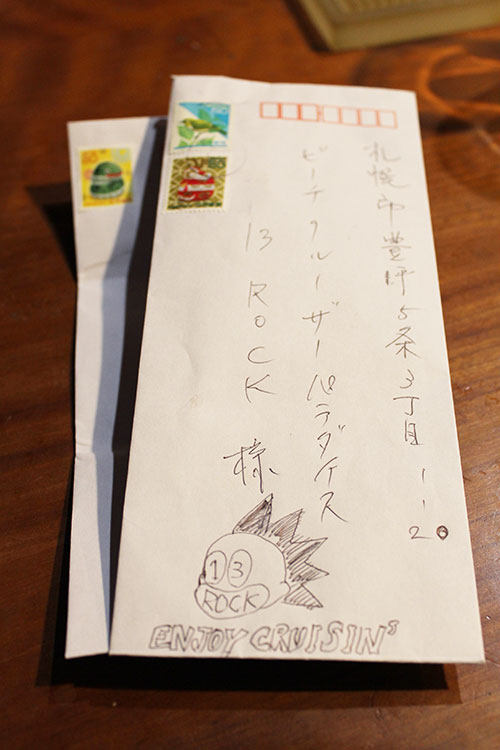 札幌市豊平5条3丁目1-20
ビーチクルーザーパラダイス
13 ROCK 様
13
ROCK
ENJOY CRUISIN'